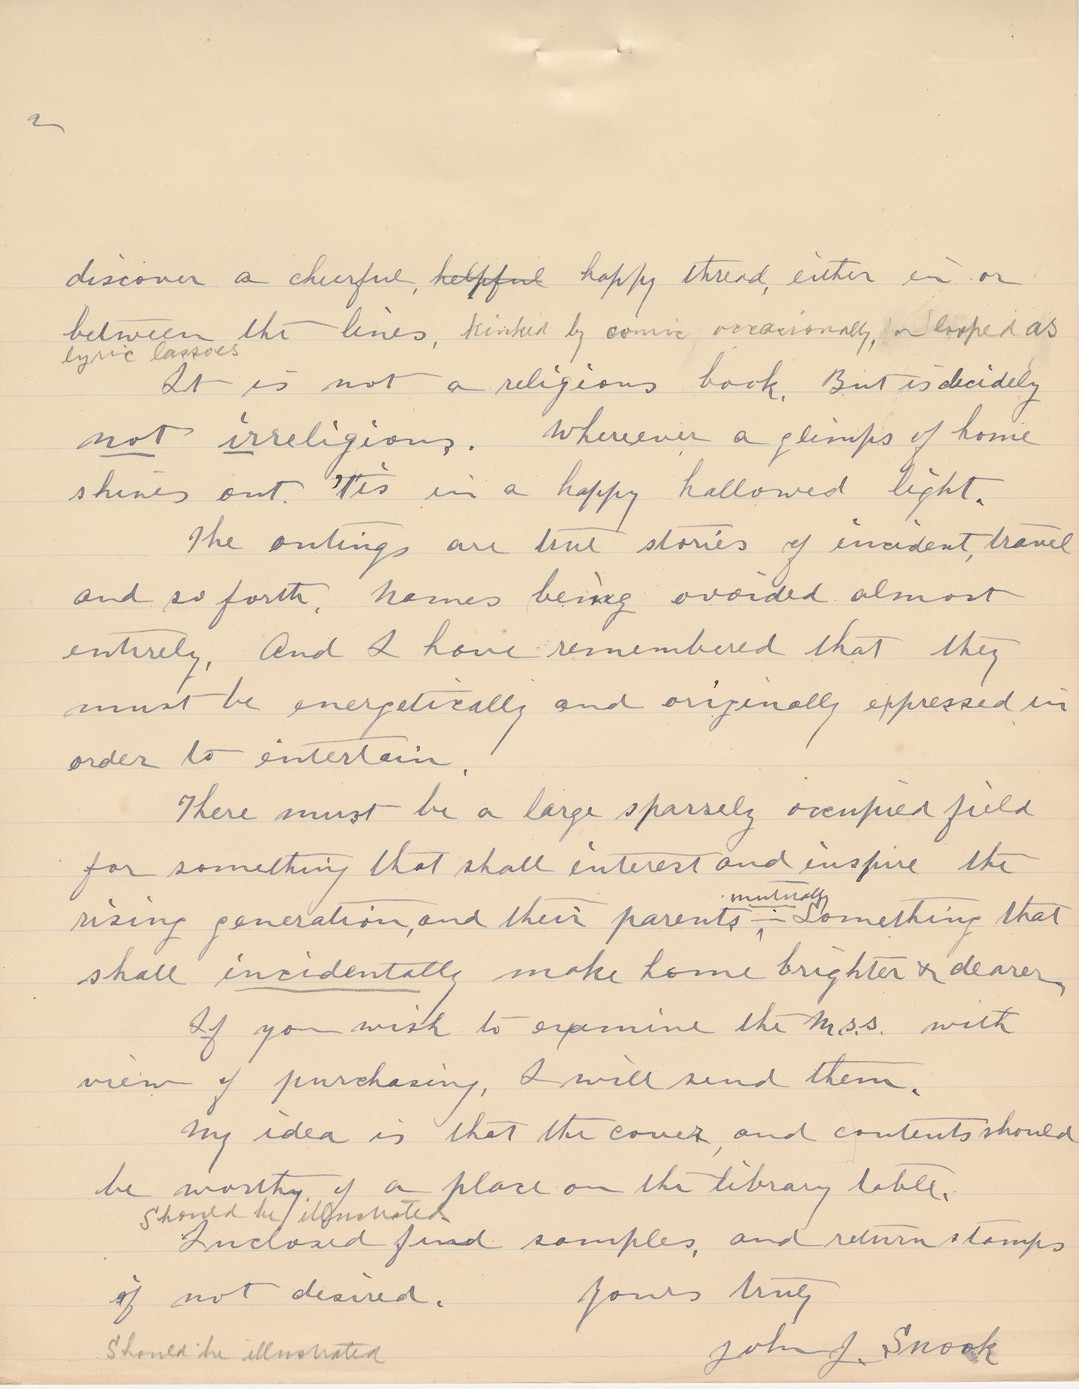 2
discover a cheerful, helpful happy thread, either in or
between the lines, kinked by comic occasionally, or looped as
lyric lassoes
It is not a religious book. But is decidely
not irreligious. Whereever a glimps of home
shines out. 'Tis in a happy hallowed light.
The outings are true stories of incident, travel
and so forth, names being avoided almost
entirely, And I have remembered that they
must be energetically and originally expressed in
order to entertain.
There must be a large sparsely occupied field
for something that shall interest and inspire the
mutually
rising generation, and their parents; Something that
shall incidentally make home brighter & dearer,
If you wish to examine the M.S.S. with
view of purchasing, I will send them.
My idea is that the cover, and contents should
be worthy of a place on the library table.
Should be illustrated
Inclosed find samples, and return stamps
if not desired. Yours truly
Should be illustrated John J. Snook